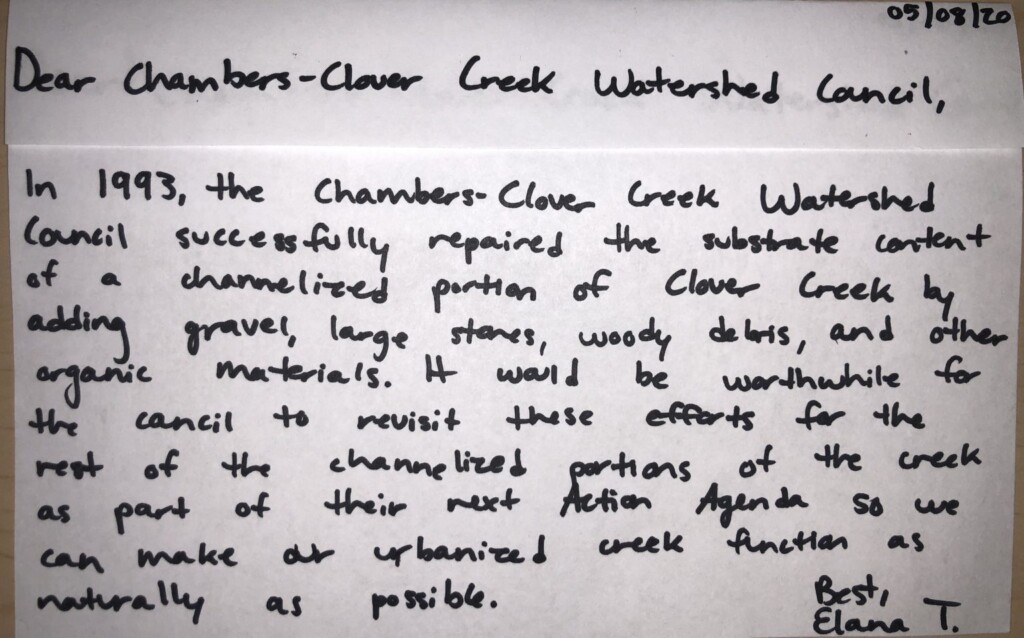 05/08/20
Dear Chambers-Clover Creek Watershed Council,
In 1993, the Chambers-Clover Creek Watershed
Council successfully repaired the substrate content
of a channelized portion of Clover Creek by
adding gravel, large stones, woody debris, and other
organic materials. It would be worthwhile for
the council to revisit these efforts for the
rest of the channelized portions of the creek
as part of their next Action Agenda so we
can make our urbanized creek function as
naturally as possible.
Best,
Elana T.